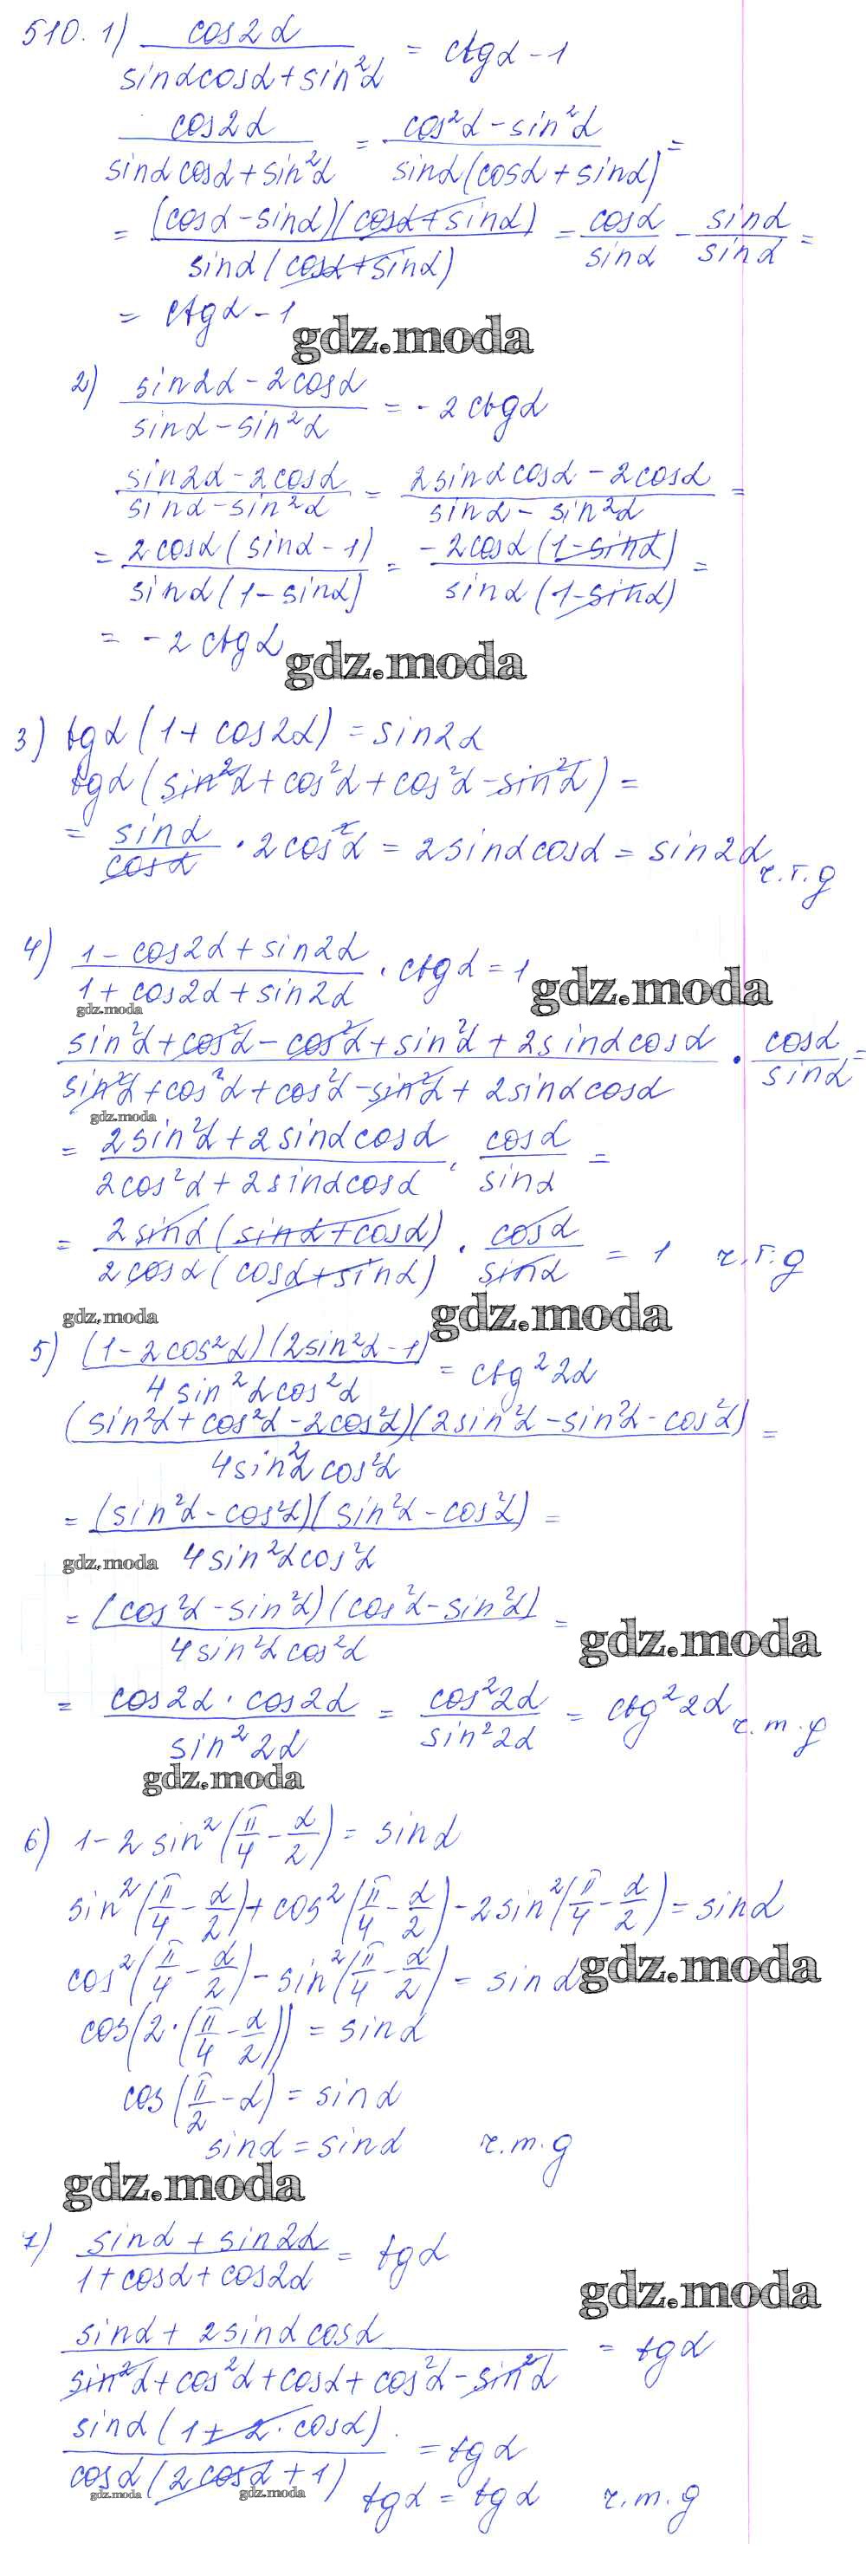 510. 1) cos2α / (sinαcosα + sin²α) = ctgα - 1
cos2α / (sinαcosα + sin²α) = (cos²α - sin²α) / (sinα(cosα + sinα)) =
= (cosα - sinα)(cosα + sinα) / (sinα(cosα + sinα)) = cosα/sinα - sinα/sinα =
= ctgα - 1
gdz.moda
2) (sin2α - 2cosα) / (sinα - sin²α) = -2ctgα
(sin2α - 2cosα) / (sinα - sin²α) = (2sinαcosα - 2cosα) / (sinα - sin²α) =
= 2cosα(sinα - 1) / (sinα(1 - sinα)) = -2cosα(1 - sinα) / (sinα(1 - sinα)) =
= -2ctgα
gdz.moda
3) tgα(1 + cos2α) = sin2α
tgα(sin²α + cos²α + cos²α - sin²α) =
= sinα/cosα · 2cos²α = 2sinαcosα = sin2α ч.т.g
4) (1 - cos2α + sin2α) / (1 + cos2α + sin2α) · ctgα = 1
gdz.moda
gdz.moda
(sin²α + cos²α - cos²α + sin²α + 2sinαcosα) / (sin²α + cos²α + cos²α - sin²α + 2sinαcosα) · cosα/sinα =
gdz.moda
= (2sin²α + 2sinαcosα) / (2cos²α + 2sinαcosα) · cosα/sinα =
= 2sinα(sinα + cosα) / (2cosα(cosα + sinα)) · cosα/sinα = 1 ч.т.g
gdz.moda
gdz.moda
5) (1 - 2cos²α)(2sin²α - 1) / (4sin²αcos²α) = ctg²2α
(sin²α + cos²α - 2cos²α)(2sin²α - sin²α - cos²α) / (4sin²αcos²α) =
= (sin²α - cos²α)(sin²α - cos²α) / (4sin²αcos²α) =
gdz.moda
= (cos²α - sin²α)(cos²α - sin²α) / (4sin²αcos²α) =
gdz.moda
= cos2α · cos2α / sin²2α = cos²2α / sin²2α = ctg²2α ч.т.g
gdz.moda
6) 1 - 2sin²(π/4 - α/2) = sinα
sin²(π/4 - α/2) + cos²(π/4 - α/2) - 2sin²(π/4 - α/2) = sinα
cos²(π/4 - α/2) - sin²(π/4 - α/2) = sinα
gdz.moda
cos(2·(π/4 - α/2)) = sinα
cos(π/2 - α) = sinα
sinα = sinα ч.т.g
gdz.moda
7) (sinα + sin2α) / (1 + cosα + cos2α) = tgα
gdz.moda
(sinα + 2sinαcosα) / (sin²α + cos²α + cosα + cos²α - sin²α) = tgα
sinα(1 + 2·cosα) / (cosα(2cosα + 1)) = tgα
gdz.moda
gdz.moda
tgα = tgα ч.т.g